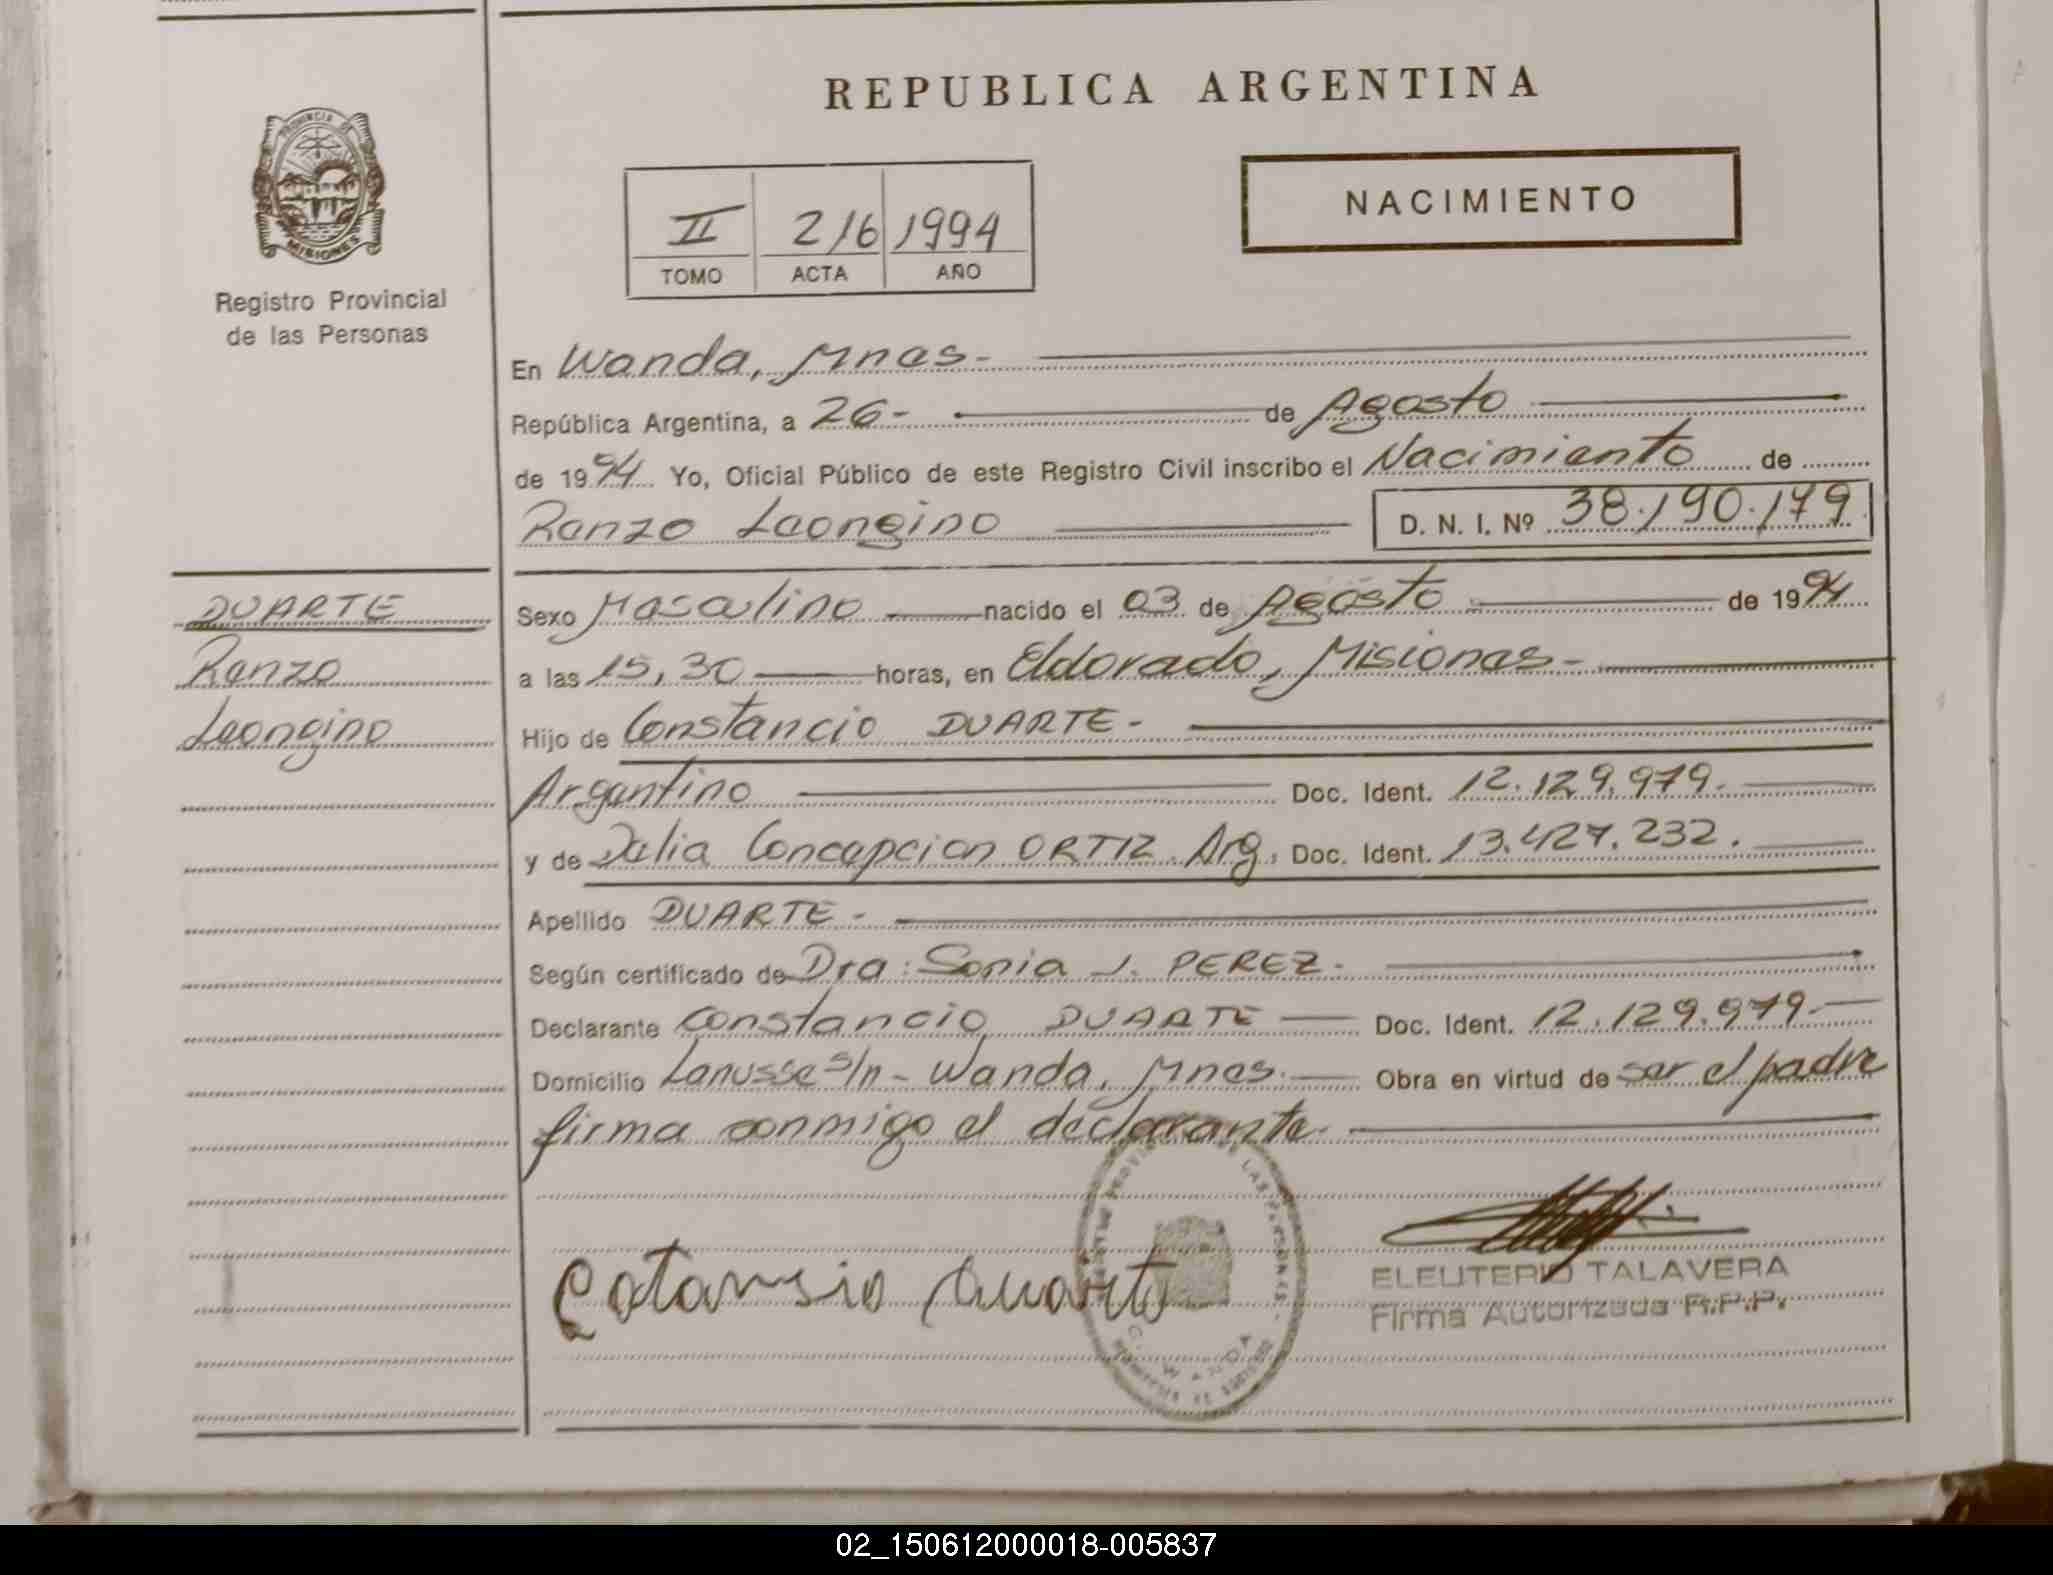 REPUBLICA ARGENTINA
PROVINCIA DE
MISIONES
Registro Provincial
de las Personas
II 216 1994
TOMO ACTA AÑO
NACIMIENTO
En Wanda, Mnes.-
República Argentina, a 26- de Agosto
de 1994 Yo, Oficial Público de este Registro Civil inscribo el Nacimiento de
Renzo Leongino D. N. I. Nº 38.190.179
DUARTE
Renzo
Leongino
Sexo Masculino nacido el 03 de Agosto de 1994
a las 15,30 horas, en Eldorado, Misiones-
Hijo de Constancio DUARTE-
Argentino Doc. Ident. 12.129.979.
y de Delia Concepcion ORTIZ. Arg. Doc. Ident. 13.427.232.
Apellido DUARTE-
Según certificado de Dra: Sonia J. PEREZ-
Declarante Constancio DUARTE Doc. Ident. 12.129.979.-
Domicilio Lanusse s/n- Wanda, Mnes. Obra en virtud de ser el padre
firma conmigo el declarante.
LAS PERSONAS
WANDA
ELEUTERIO TALAVERA
Firma Autorizada R.P.P.
02_150612000018-005837